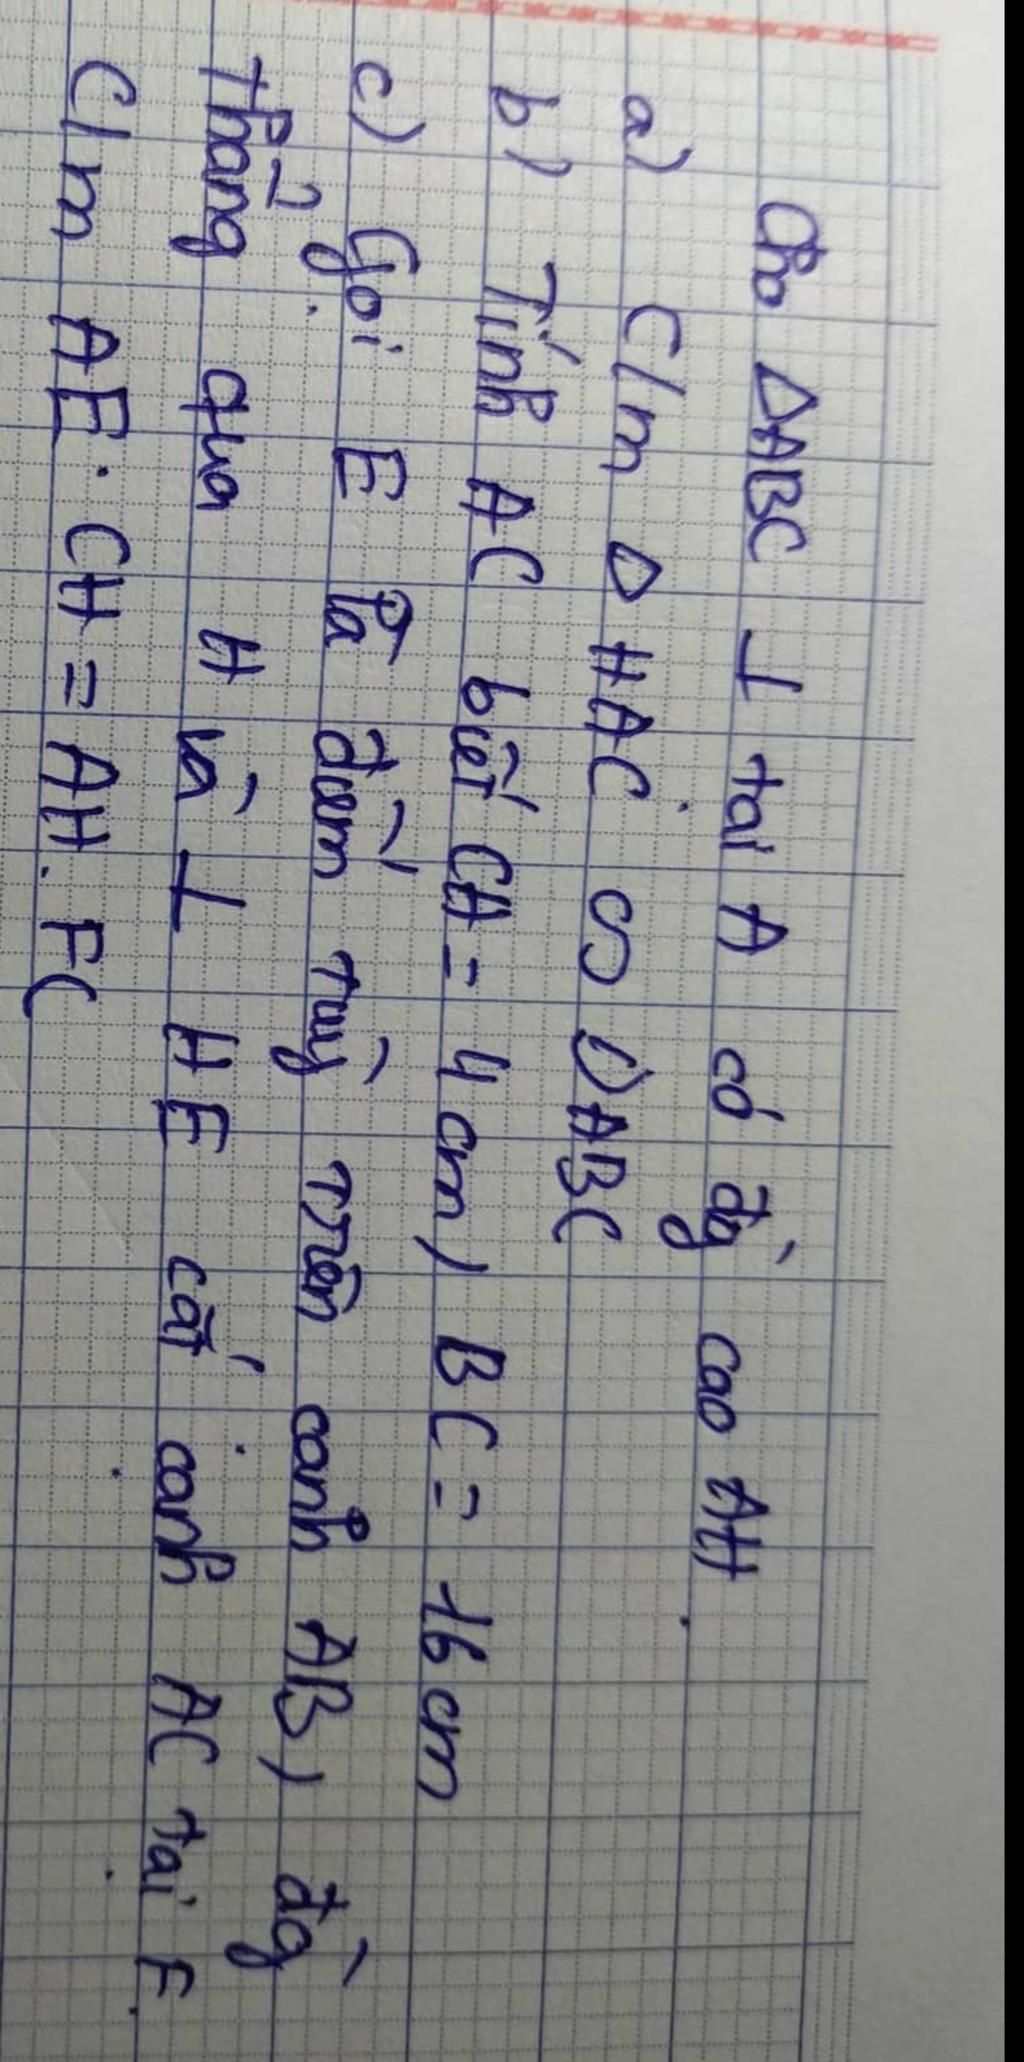 Cho ΔABC ⊥ tại A có đg̀ cao AH.
a) C/m Δ HAC ∽ ΔABC
b) Tính AC biết CH = 4cm, BC = 16cm
c) Gọi E là điểm tuỳ trên cạnh AB, đg̀
thẳng qua H và ⊥ HE cắt cạnh AC tại F.
C/m AE. CH = AH. FC